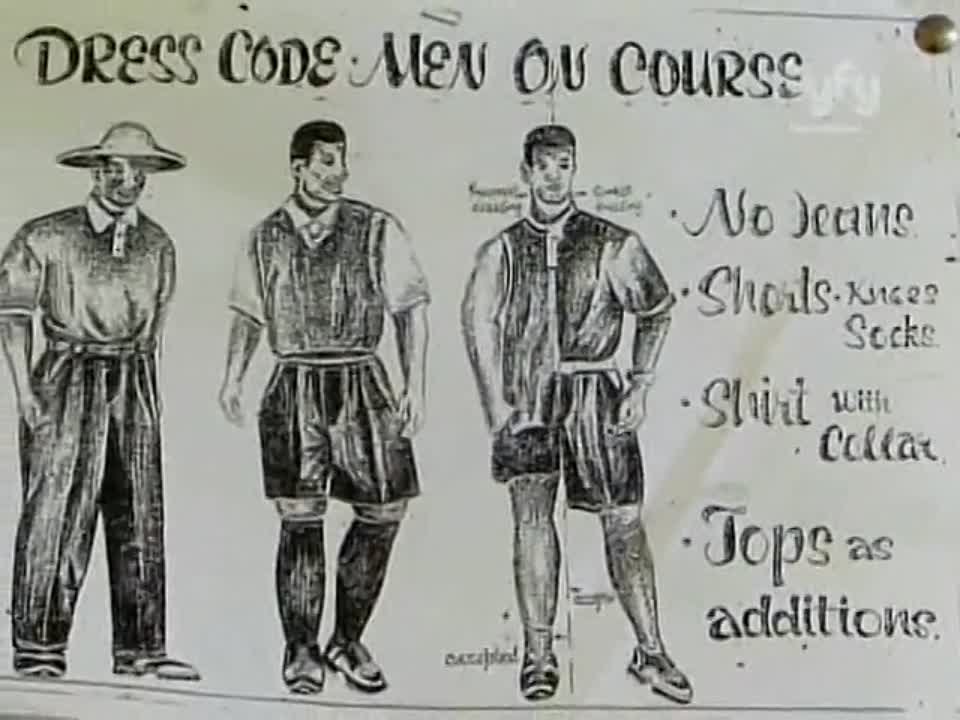 DRESS CODE · MEN ON COURSE
syfy
· No Jeans.
· Shorts · Knees
Socks.
· Shirt with
Collar.
· Tops as
additions.